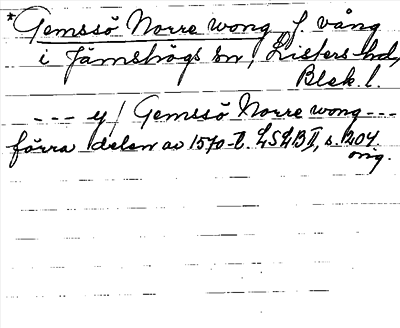 *Gemssö Norre wong f. vång
i Jämshögs sn, Listers hd,
Blek. l.
--- y/ Gemssö Norre wong ---
förra delen av 1570-t. LSLB II, s. 204
orig.